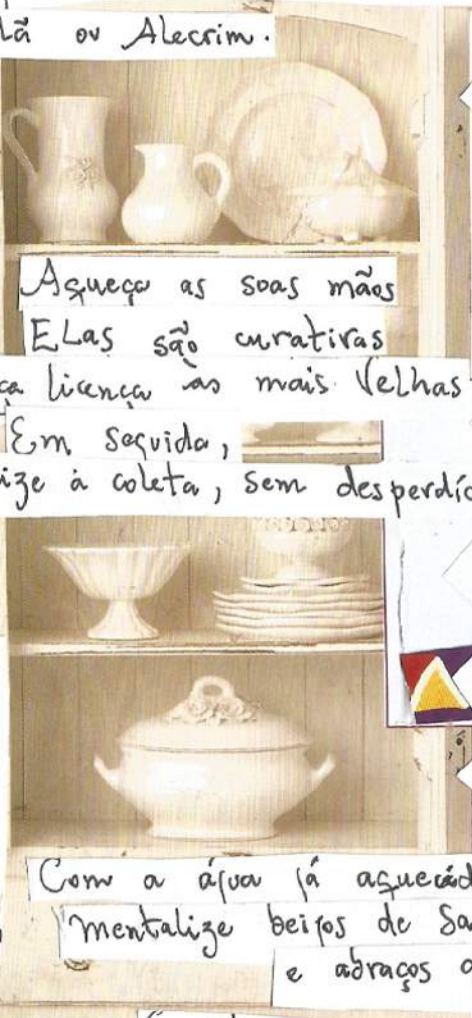 lã ou Alecrim.
Aqueça as suas mãos
ELas são curativas
ça licença às mais velhas
Em seguida,
ize a coleta, sem desperdíc
Com a água já aquecid
mentalize beijos de Sa
e abraços a